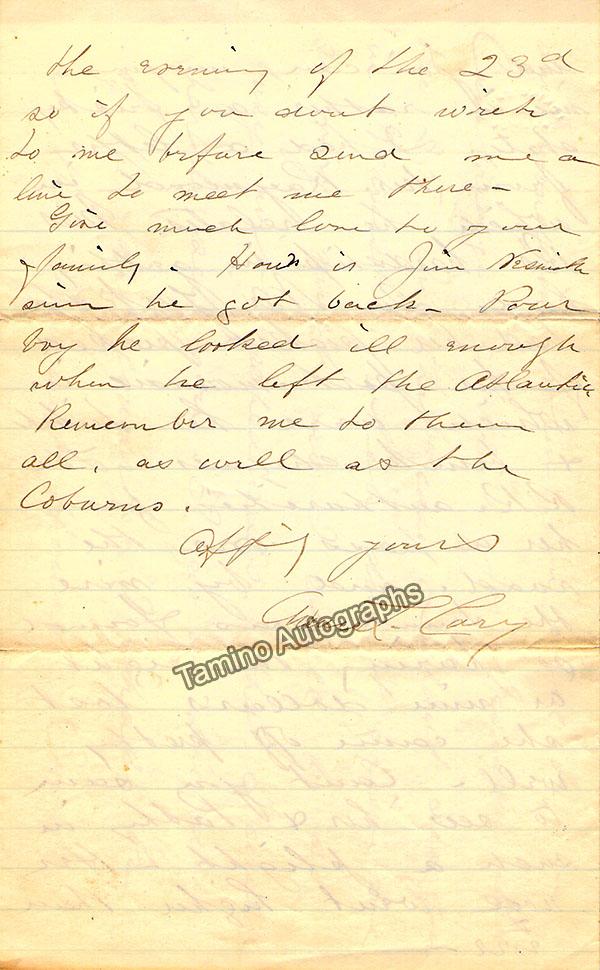 the evening of the 23d
so if you dont write
to me before send me a
line to meet me there -
Give much love to your
family. How is Jim
since he got back - Poor
boy he looked ill enough
when he left the Atlantic
Remember me to them
all, as well as the
Coburns.
Affly yours
Cary
Tamino Autographs